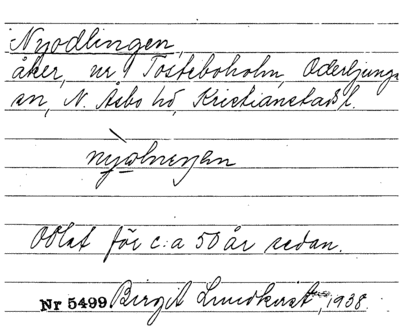 Nyodlingen,
åker, nr 1 Tosteboholm, Oderljunga
sn, N. Åsbo hd, Kristianstads l.
Odlat för c:a 50 år sedan.
Nr 5499. Birgit Lundkvist, 1938.